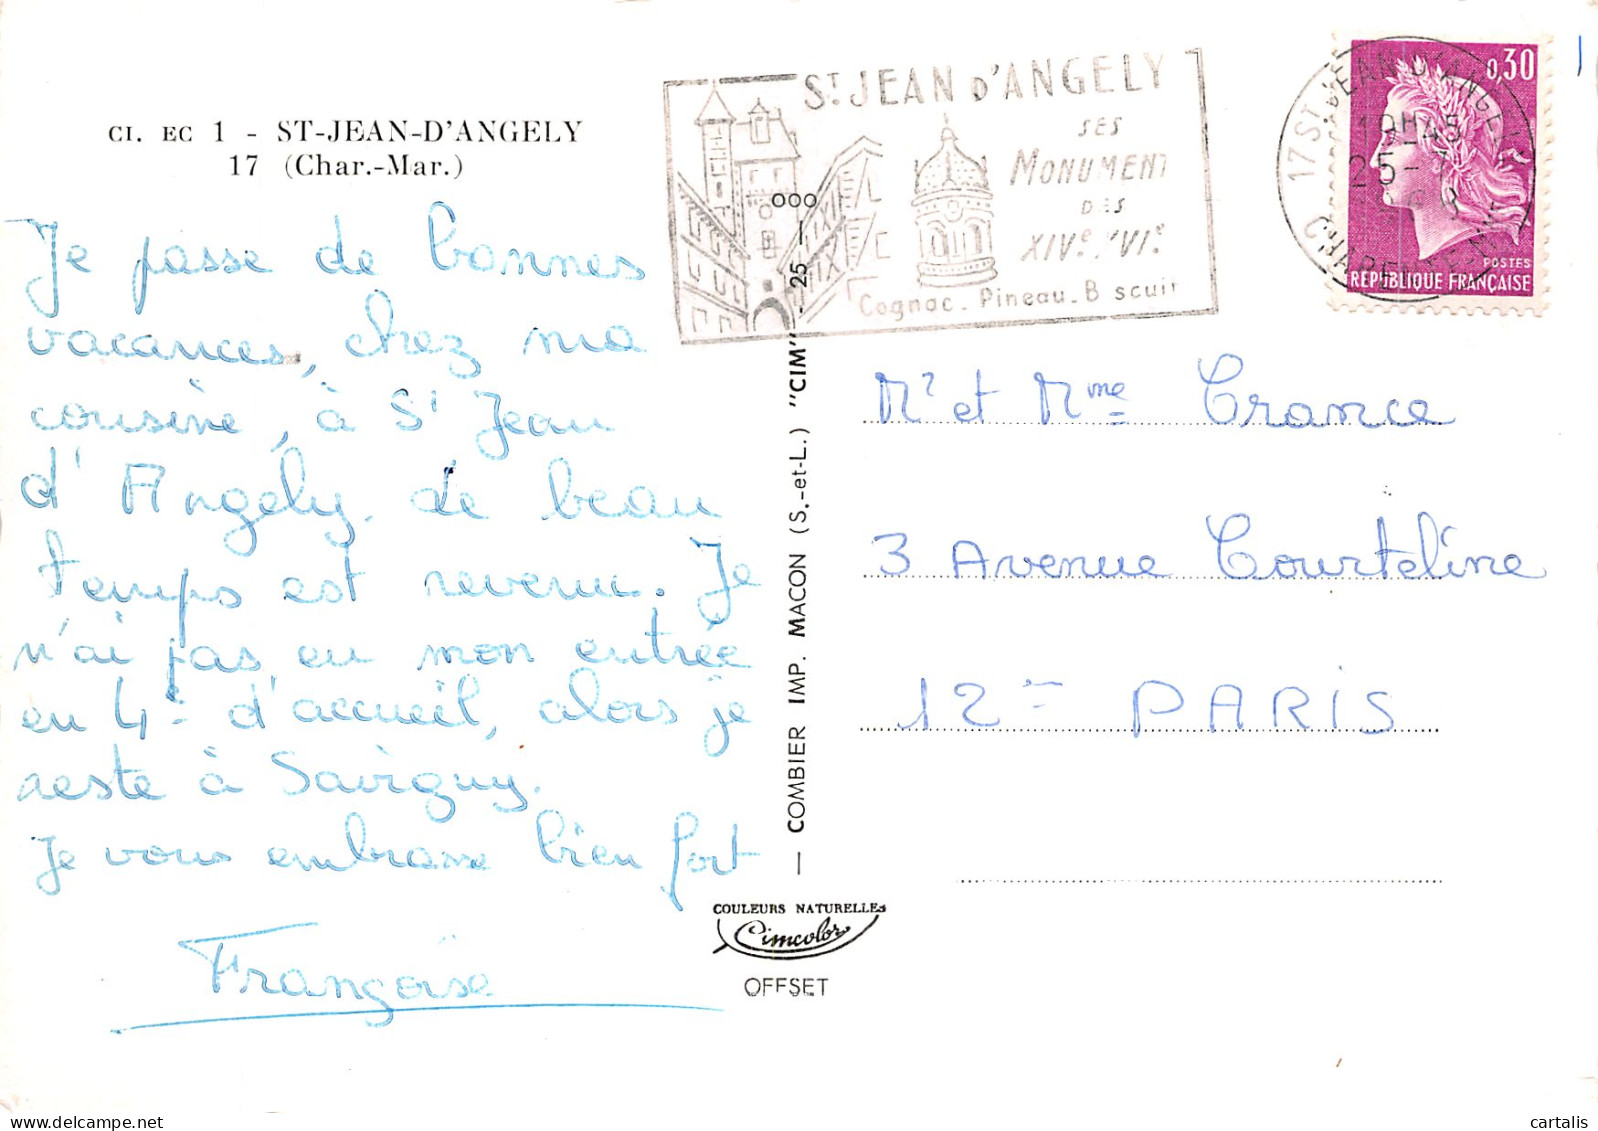 CI. EC 1 - ST-JEAN-D'ANGELY
17 (Char.-Mar.)
Je passe de bonnes
vacances, chez ma
cousine, à St Jean
d'Angely. de beau
temps est revenu. Je
n'ai pas eu mon entrée
en 4e d'accueil, alors je
reste à Savigny.
Je vous embrasse bien fort
Françoise
ST JEAN D'ANGELY
SES
MONUMENT
DES
XIVe XVIe
Cognac - Pineau - B scuit
17 ST JEAN D'ANGELY
19H45
25-7
CHARENTE MME
0,30
POSTES
REPUBLIQUE FRANÇAISE
— COMBIER IMP. MACON (S.-et-L.) "CIM" - 25 — 000
COULEURS NATURELLES
Cimcolor
OFFSET
Mr et Mme Crance
3 Avenue Courteline
12me PARIS
cartalis